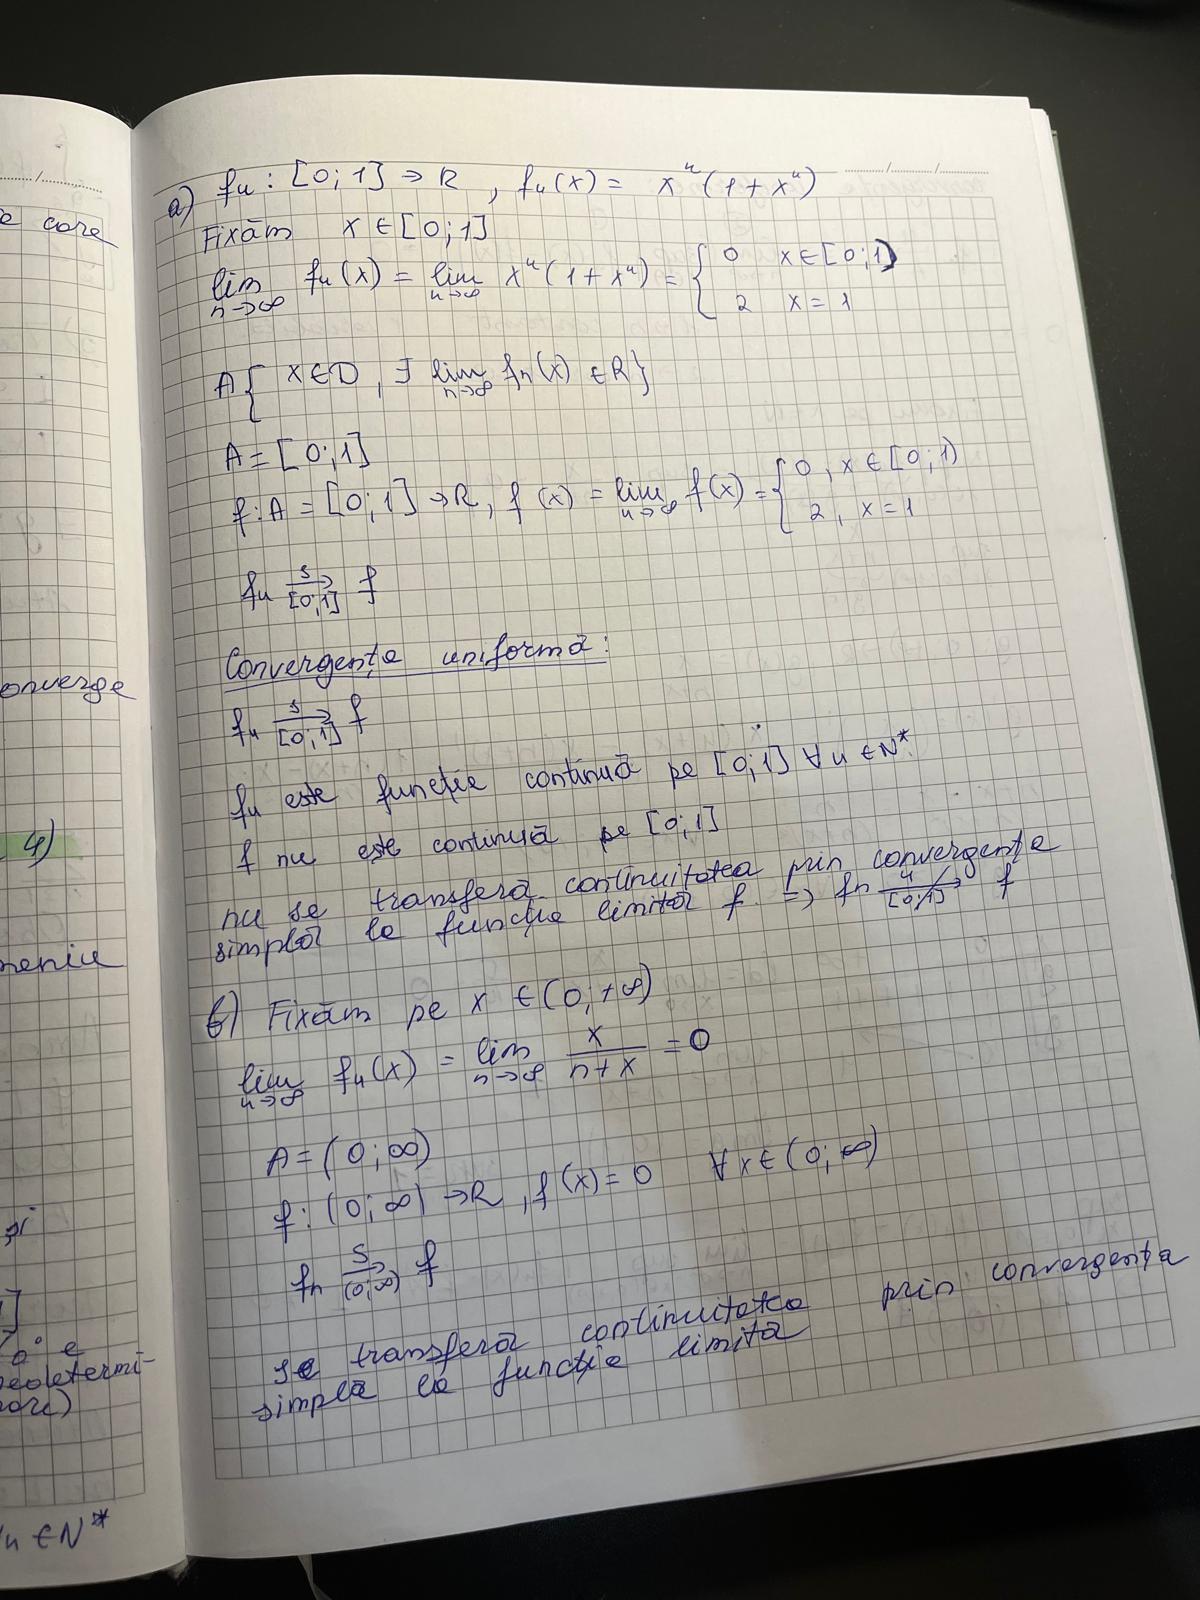 e care
onverge
4)
meniu
și
"0" e
nedetermi-
nare)
∀n ∈ N*
a) fn : [0; 1] → R , fn(x) = xⁿ(1 + xⁿ)
Fixăm x ∈ [0; 1]
lim n→∞ fn(x) = lim n→∞ xⁿ(1 + xⁿ) = { 0 x ∈ [0; 1)
2 x = 1
A { x ∈ D , ∃ lim n→∞ fn(x) ∈ R }
A = [0; 1]
f : A = [0; 1] → R, f(x) = lim n→∞ f(x) = { 0, x ∈ [0; 1)
2, x = 1
fn s→ [0; 1] f
Convergența uniformă:
fn s→ [0; 1] f
fn este funcție continuă pe [0; 1] ∀n ∈ N*
f nu este continuă pe [0; 1]
nu se transferă continuitatea prin convergența
simplă la funcție limită f. ⇒ fn u↛ [0; 1] f
b) Fixăm pe x ∈ (0; +∞)
lim n→∞ fn(x) = lim n→∞ x/(n + x) = 0
A = (0; ∞)
f : (0; ∞) → R , f(x) = 0 ∀x ∈ (0; ∞)
fn s→ (0; ∞) f
se transferă continuitatea prin convergența
simplă la funcție limită